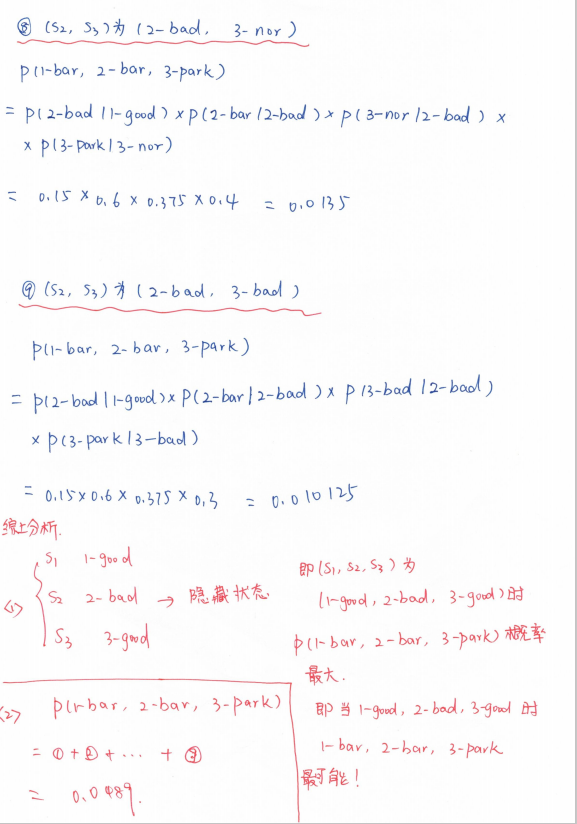 ⑧ (S2, S3) 为 (2-bad, 3-nor)
p(1-bar, 2-bar, 3-park)
= p(2-bad|1-good) × p(2-bar|2-bad) × p(3-nor|2-bad) ×
× p(3-park|3-nor)
= 0.15 × 0.6 × 0.375 × 0.4 = 0.0135
⑨ (S2, S3) 为 (2-bad, 3-bad)
p(1-bar, 2-bar, 3-park)
= p(2-bad|1-good) × p(2-bar|2-bad) × p(3-bad|2-bad)
× p(3-park|3-bad)
= 0.15 × 0.6 × 0.375 × 0.3 = 0.010125
综上分析.
<1>
S1 1-good
S2 2-bad → 隐藏状态
S3 3-good
即 (S1, S2, S3) 为
(1-good, 2-bad, 3-good) 时
p(1-bar, 2-bar, 3-park) 概率
最大.
即当 1-good, 2-bad, 3-good 时
1-bar, 2-bar, 3-park
最可能!
<2> p(1-bar, 2-bar, 3-park)
= ① + ② + ... + ⑨
= 0.0489.